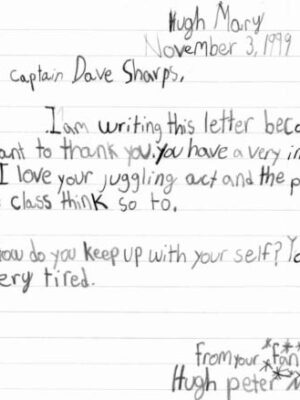 Hugh Mary
November 3, 1999
Captain Dave Sharps,
I am writing this letter beco
ant to thank you. you have a very in
I love your juggling act and the p
class think so to.
ow do you keep up with your self? Yo
ery tired.
from your *fan**
Hugh peter M